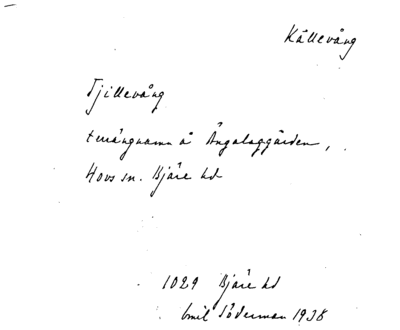 Källevång
Tjillevång
terrängnamn å Ängalaggården,
Hovs sn. Bjäre hd
1029 Bjäre hd
Emil Söderman 1938